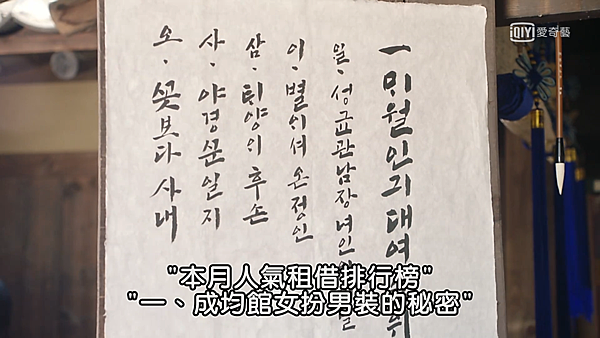 QIY 愛奇藝
一 미월 인기 대여
일. 성균관 남장녀인
이. 별의셔 온 정인
삼. 틱양의 후손
사. 야경ᄭᅮᆫ일지
오. ᄭᅩᆺ보다 사내
"本月人氣租借排行榜"
"一、成均館女扮男裝的秘密"